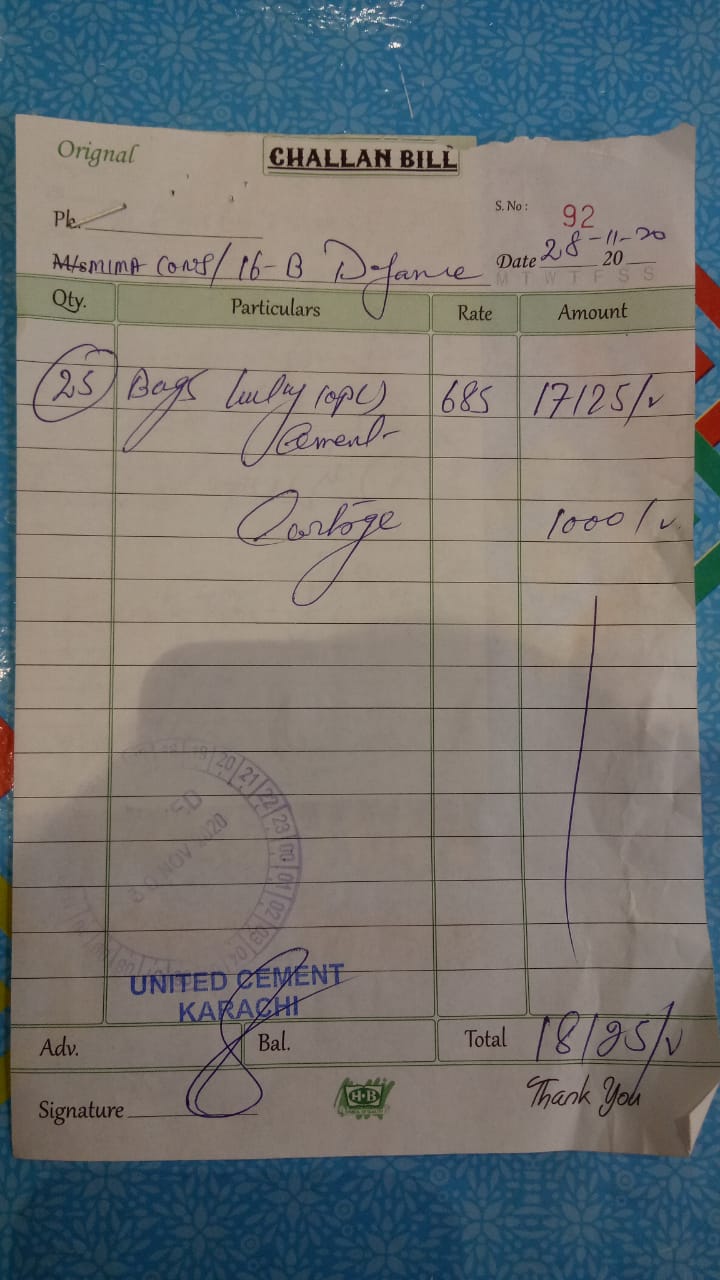 Orignal
CHALLAN BILL
Ph.
S. No : 92
M/s MIMA CONS/ 16-B Defance
Date 28-11-20 20
M T W T F S S
Qty. Particulars Rate Amount
25 Bags lucky (OPC) 685 17125/-
Cement
Cartage 1000/-
19 20 21 22 23 00 01 02 03 04
30 NOV 2020
UNITED CEMENT
KARACHI
Adv. Bal. Total 18125/-
Signature
H-B
Thank You